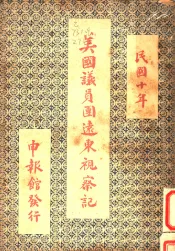 民國十年
美國議員團遠東視察記
申報館發行